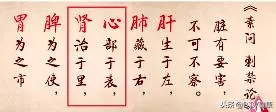 《素问 刺禁论》
脏有要害，
不可不察。
肝生于左，
肺藏于右，
心部于表，
肾治于里，
脾为之使，
胃为之市